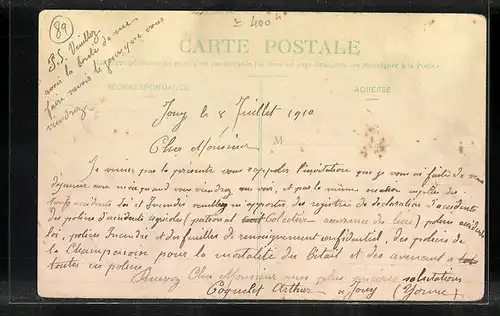 89
400
P.S. Veuillez
avoir la bonté de me
faire savoir le jour que vous
viendrez
CARTE POSTALE
CORRESPONDANCE
ADRESSE
Jouy le 8 Juillet 1910
M
Cher Monsieur
Je viens par la présente vous rappeler l'invitation que je vous ai faite de venir
déjeuner avec moi quand vous viendrez me voir, et par la même occasion
accidents loi et Incendie veuillez m'apporter des registres de déclaration d'accidents
des polices d'accidents agricole (patronal Collective assurance de tiers) polices accidents
loi, polices Incendie et des feuilles de renseignement confidentiel, des polices de
la Champenoise pour la mortalité du Bétail et des avenants à
toutes ces polices
Recevez Cher Monsieur mes plus sincères salutations
Coquelet Arthur à Jouy (Yonne)